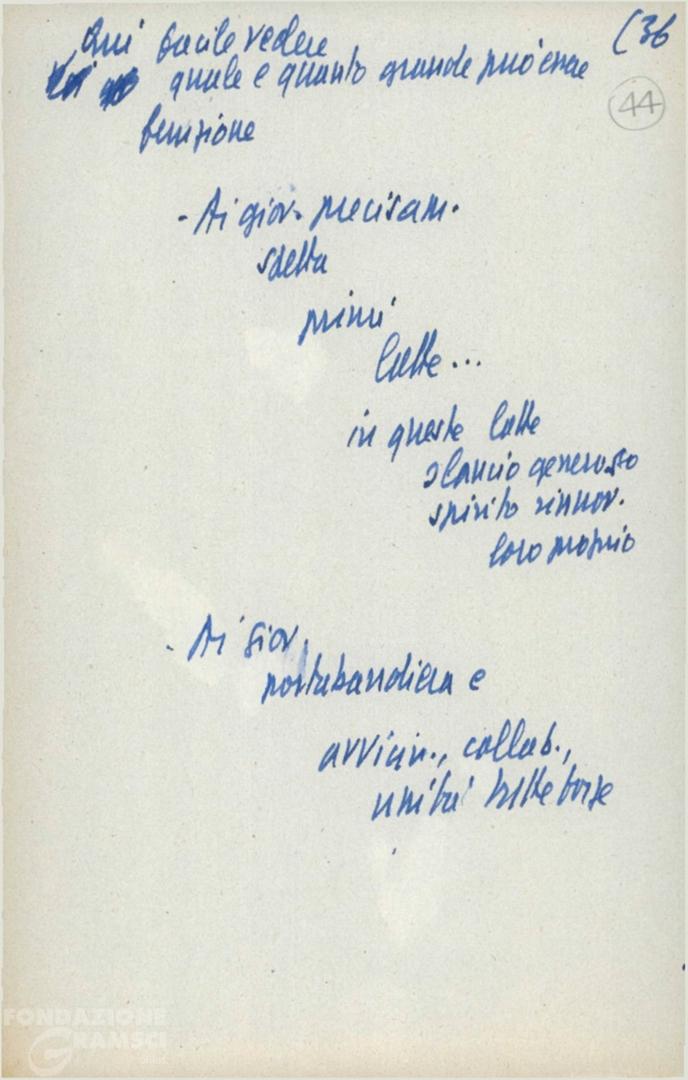 Qui facile vedere (36
quale e quanto grande può essere
44
funzione
- Ai giov. precisam.
spetta
primi
lotte...
in queste lotte
slancio generoso
spirito rinnov.
loro proprio
- Ai giov.
portabandiera e
avvicin., collab.,
unità tutte forze
FONDAZIONE
GRAMSCI